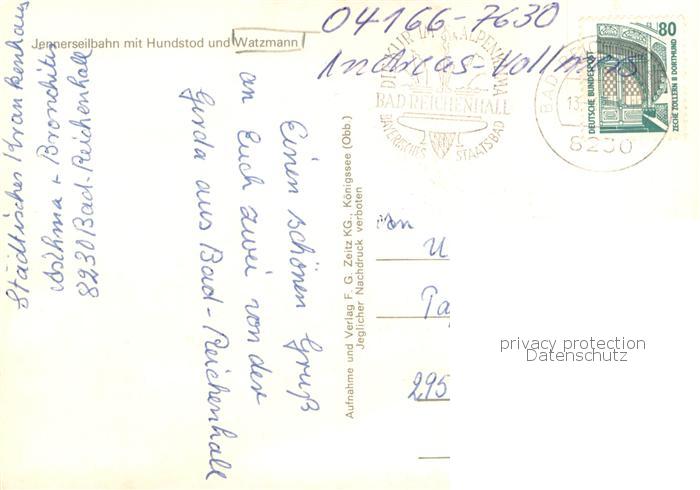 Jennerseilbahn mit Hundstod und Watzmann
04166-7630
Andreas-Vollmers
Städtisches Krankenhaus
Asthma + Bronchitis
8230 Bad-Reichenhall
Einen schönen Gruß
an Euch zwei von der
Gerda aus Bad-Reichenhall
Aufnahme und Verlag F. G. Zeitz KG., Königssee (Obb.)
Jeglicher Nachdruck verboten
DIE KUR IM ALPENKLIMA
BAD REICHENHALL
BAYERISCHES STAATSBAD
BAD
13.
8230
80
DEUTSCHE BUNDESPOST
ZECHE ZOLLERN II DORTMUND
an
U
Ta
295
privacy protection
Datenschutz